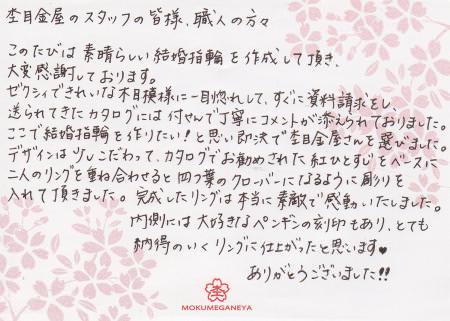 杢目金屋のスタッフの皆様、職人の方々
このたびは素晴らしい結婚指輪を作成して頂き、
大変感謝しております。
ゼクシィできれいな木目模様に一目惚れして、すぐに資料請求をし、
送られてきたカタログには付せんで丁寧にコメントが添えられておりました。
ここで結婚指輪を作りたい!と思い即決で杢目金屋さんを選びました。
デザインは少しこだわって、カタログでお勧めされた紅ひとすじをベースに
二人のリングを重ね合わせると四つ葉のクローバーになるように彫りを
入れて頂きました。完成したリングは本当に素敵で感動いたしました。
内側には大好きなペンギンの刻印もあり、とても
納得のいくリングに仕上がったと思います♥
ありがとうございました!!
MOKUMEGANEYA